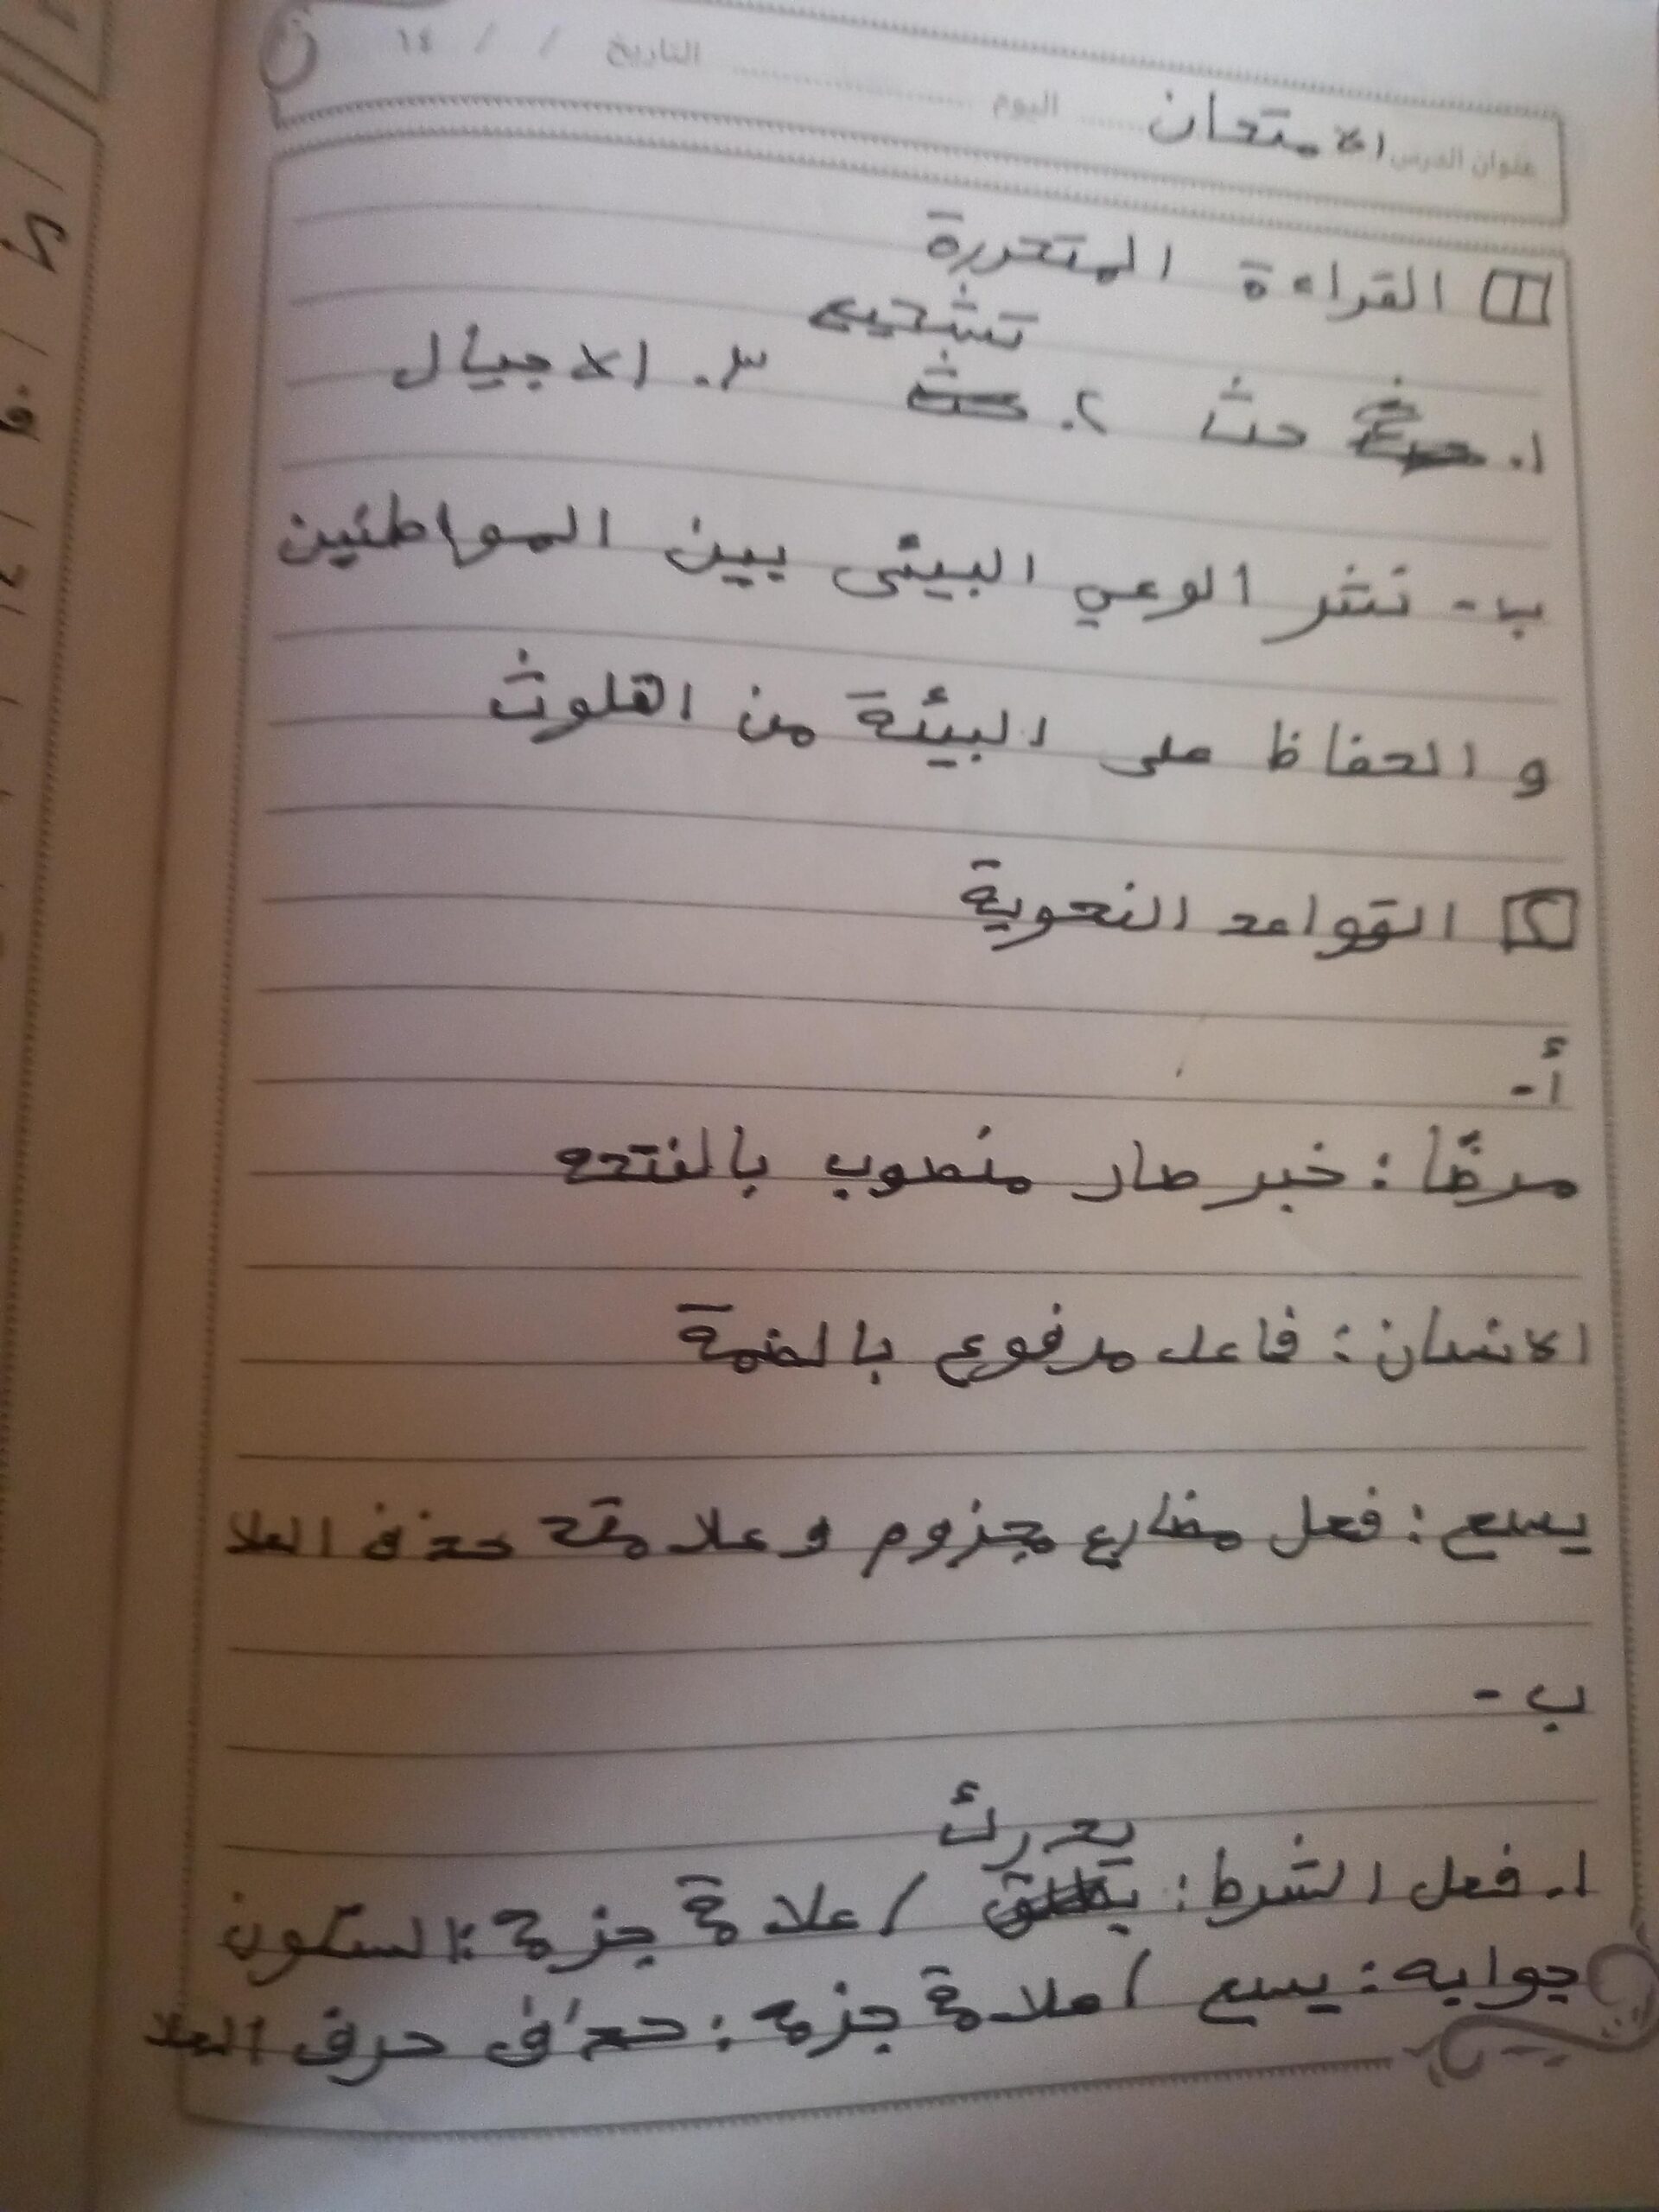 التاريخ / / ١٤
عنوان الدرس الامتحان اليوم
١ القراءة المتحررة
تشجيع
١. حث ٢. حث ٣. الاجيال
ب - نشر الوعي البيئى بين المواطنين
و الحفاظ على البيئة من التلوث
٢ القواعد النحوية
أ -
مرضًا : خبر صار منصوب بالفتحه
الانسان : فاعل مرفوع بالضمة
يسع : فعل مضارع مجزوم وعلامته حذف العلا
ب -
يدرك
١. فعل الشرط : / علامة جزمه : السكون
جوابه : يسع / علامة جزمه : حذف حرف العلا